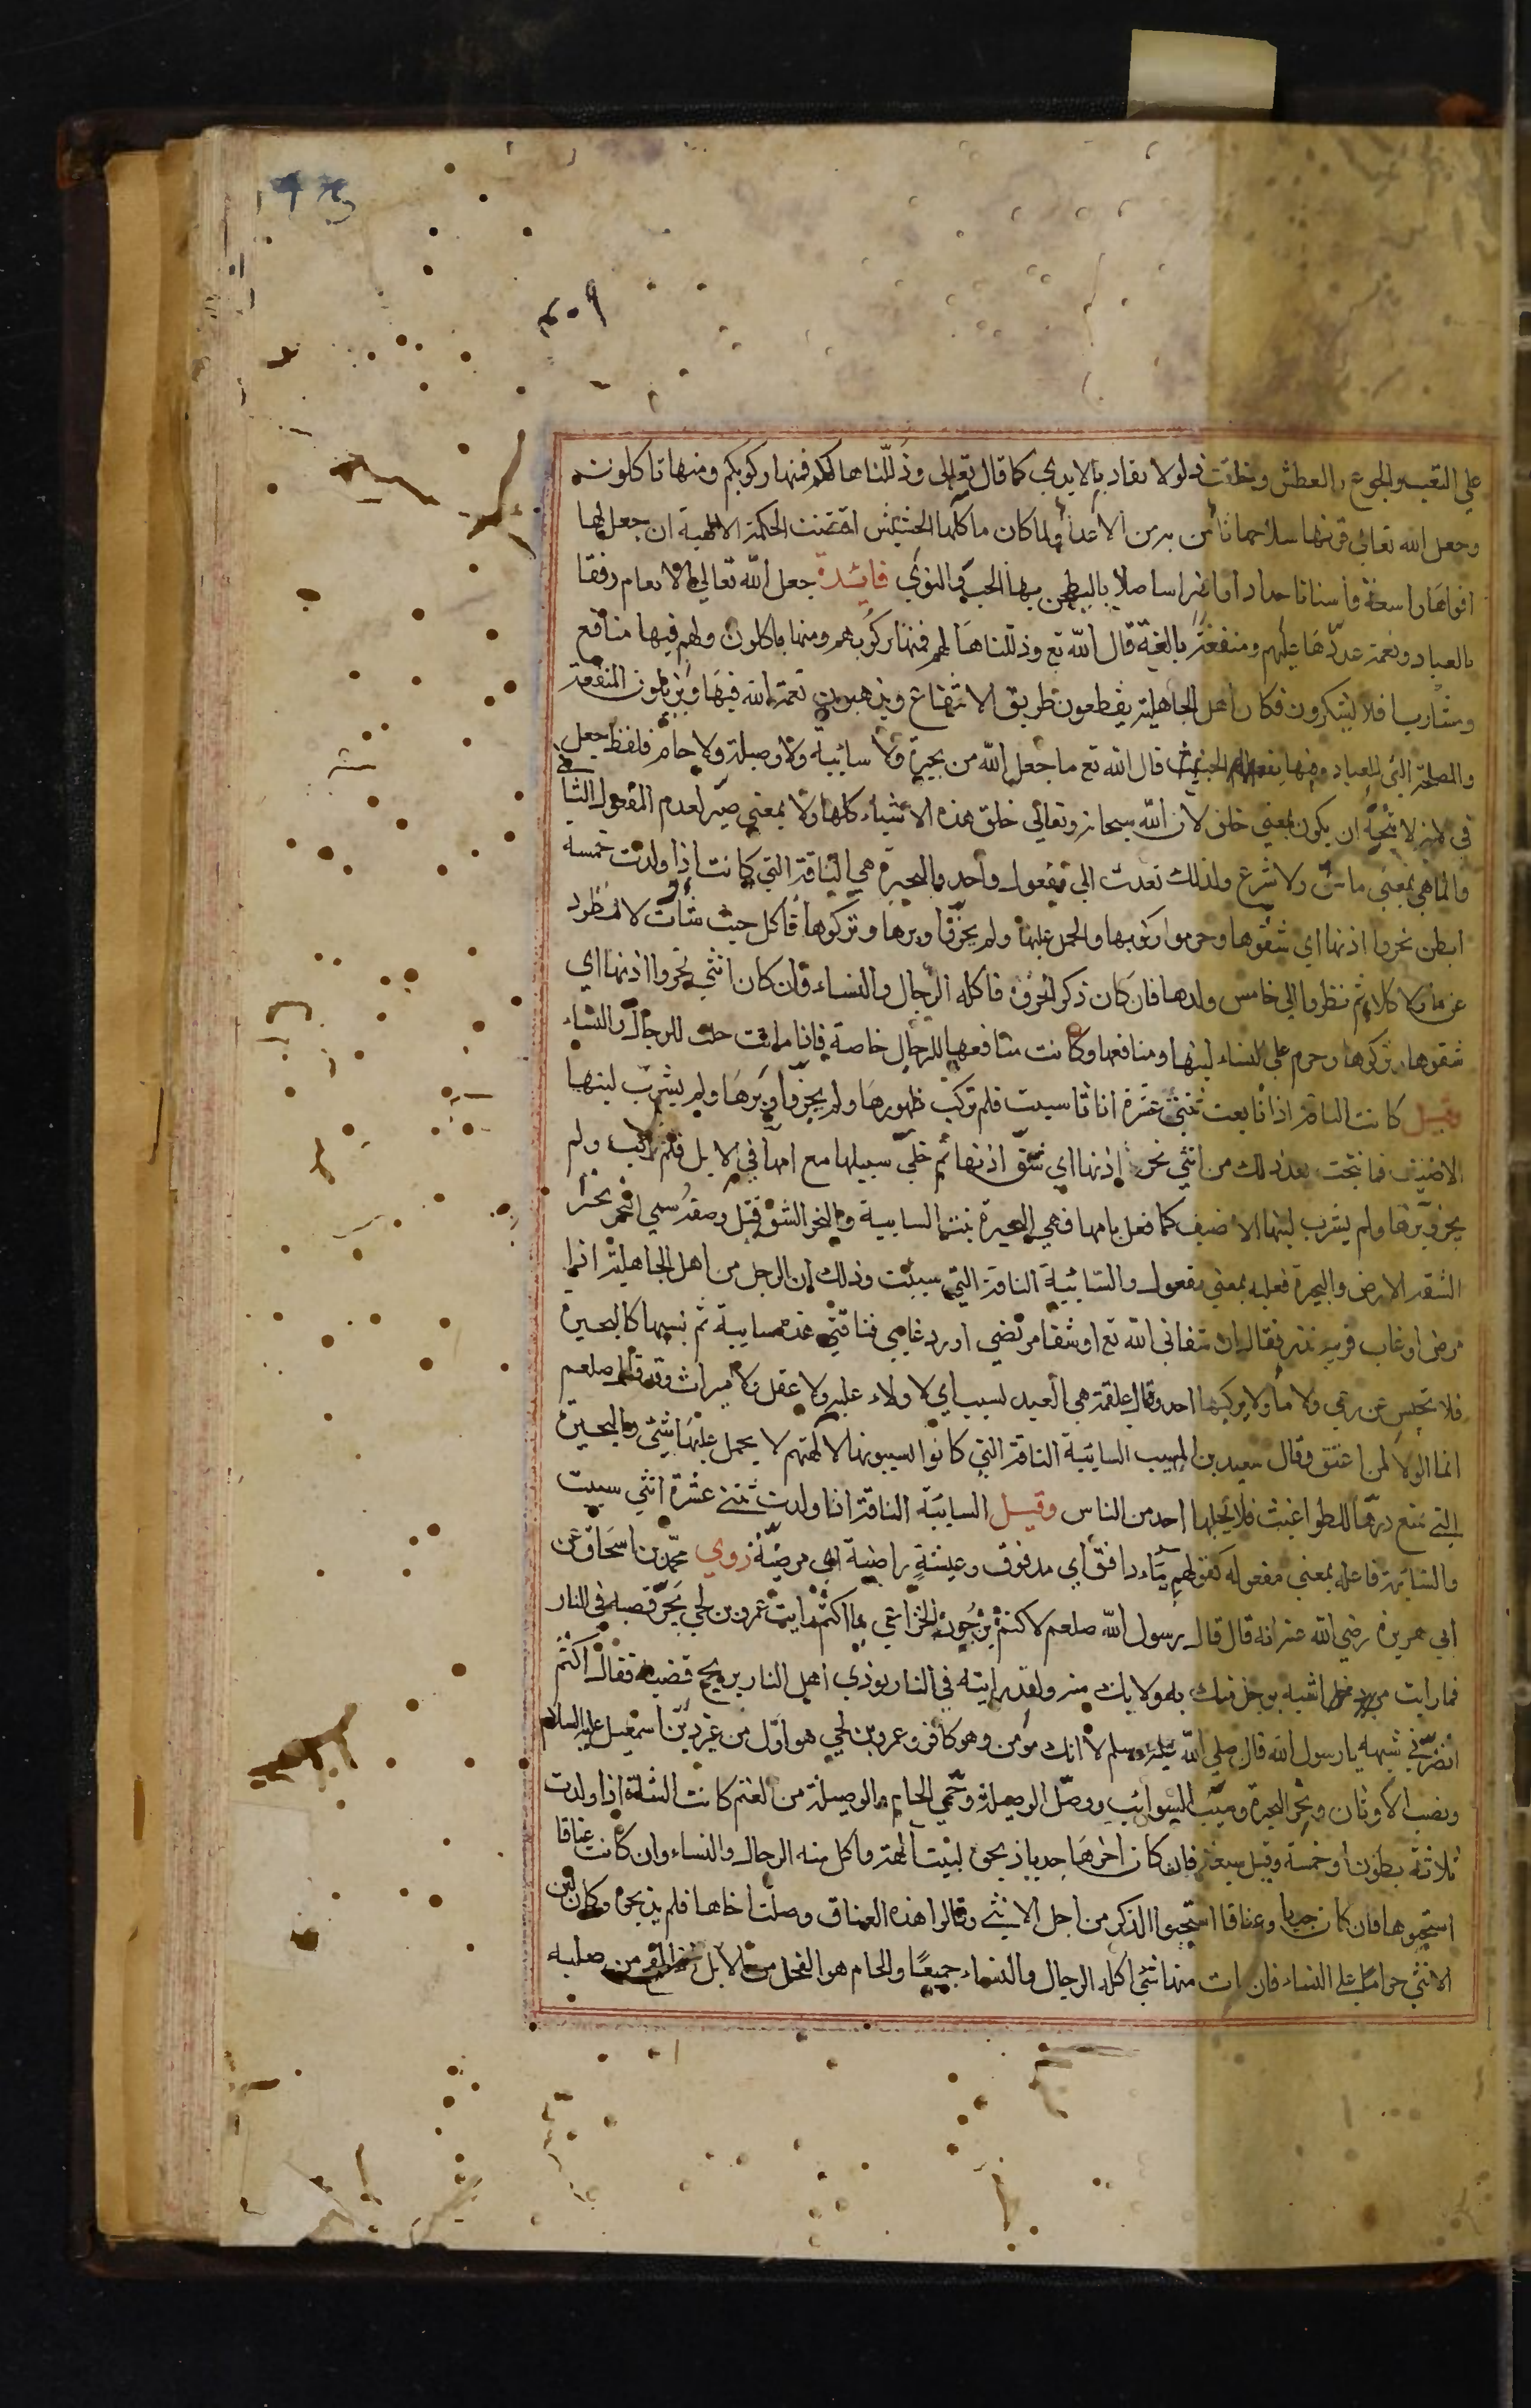 ١٩٣
٢٥٩
علي التعب والجوع والعطش وخلقت ذلولا تقاد بالايدي كما قال تعالى وذللناها لكم فمنها ركوبكم ومنها تاكلون
وجعل الله تعالى قرنها سلاحها تامن به من الاعداء ولما كان ماكلها الحشيش اقتضت الحكمة الالهية ان جعل لها
افواها واسعة واسنانا حدادا واضراسا صلابا لتطحن بها الحب والنوي فائدة جعل الله تعالى الانعام رفقا
بالعباد ونعمة عدّدها عليهم ومنفعة بالغة قال الله تع وذللناها لهم فمنها ركوبهم ومنها ياكلون ولهم فيها منافع
ومشارب افلا يشكرون فكان اهل الجاهلية يقطعون طريق الانتفاع ويذهبون نعمة الله فيها ويزيلون المنفعة
والمصلحة التي للعباد فيها بفعلهم الخبيث قال الله تع ما جعل الله من بحيرة ولا سائبة ولا وصيلة ولا حام فلفظ جعل
في لانه لا يتجه ان يكون بمعني خلق لان الله سبحانه وتعالي خلق هذه الاشياء كلها ولا بمعني صير لعدم المفعول الثاني
وانما هي بمعني ما سن ولا شرع ولذلك تعدت الي مفعول واحد والبحيرة هي الناقة التي كانت اذا ولدت خمسه
ابطن نحروا اذنها اي شقوها وحرموا ركوبها والحمل عليها ولم يجزوا وبرها وتركوها تاكل حيث شاءت لا تطرد
عن ماء ولا كلاء ثم نظروا الي خامس ولدها فان كان ذكرا نحروه فاكله الرجال والنساء وان كان انثي نحروا اذنها اي
شقوها وتركوها وحرم علي النساء لبنها ومنافعها وكانت منافعها للرجال خاصة فاذا ماتت حلت للرجال والنساء
وقيل كانت الناقة اذا تابعت ثنتي عشرة اناثا سيبت فلم تركب ظهورها ولم يجزوا وبرها ولم يشرب لبنها
الا ضيف فما نتجت بعد ذلك من انثي نحر اذنها اي شق اذنها ثم خلي سبيلها مع امها في الابل فلم تركب ولم
يجز وبرها ولم يشرب لبنها الا ضيف كما فعل بامها فهي البحيرة بنت السايبة والبحر الشق قيل ومنه سمي البحر بحرا
لشقه الارض والبحيرة فعيلة بمعني مفعول والسائبة الناقة التي سيبت وذلك ان الرجل من اهل الجاهلية اذا
مرض او غاب قريبه نذر فقال ان شفاني الله تع او شفا مريضي او رد غايبي فناقتي هذه سايبة ثم يسيبها كالبحيرة
فلا تحبس عن رعي ولا ماء ولا يركبها احد وقال علقمة هي العبد يسيب اي لا ولاء عليه ولا عقل ولا ميراث وقد قال صلعم
انما الولا لمن اعتق وقال سعيد بن المسيب السائبة الناقة التي كانوا يسيبونها لالهتهم لا يحمل عليها شئ والبحيرة
التي يمنع درها للطواغيث فلا يحلبها احد من الناس وقيل السائبة الناقة اذا ولدت ثنتي عشرة انثي سيبت
والسائبة فاعله بمعني مفعوله كقولهم ماء دافق اي مدفوق وعيشة راضية اي مرضية روي محمد بن اسحاق عن
ابي هريرة رضي الله عنه انه قال قال رسول الله صلعم لاكثم بن جون الخزاعي يا اكثم رايت عمرو بن لحي يجر قصبه في النار
فما رايت من رجل اشبه برجل منك به ولا بك منه ولقد رايته في النار يوذي اهل النار بريح قصبه فقال اكثم
ايضرني شبهه يا رسول الله قال صلي الله عليه وسلم لا انك مؤمن وهو كافر وعمرو بن لحي هو اول من غير دين اسمعيل عليه السلام
ونصب الاوثان وبحر البحيرة وسيب السوائب ووصل الوصيلة وحمي الحام والوصيلة من الغنم كانت الشاة اذا ولدت
ثلاثة بطون او خمسة وقيل سبعة فان كان اخرها جديا ذبحوه لبيت الهته واكل منه الرجال والنساء وان كانت عناقا
استحيوها فان كان جديا وعناقا استحيوا الذكر من اجل الانثي وقالوا هذه العناق وصلت اخاها فلم يذبحوه وكان لبن
الانثي حراما علي النساء فان مات منها شئ اكله الرجال والنساء جميعا والحام هو الفحل من الابل من صلبه